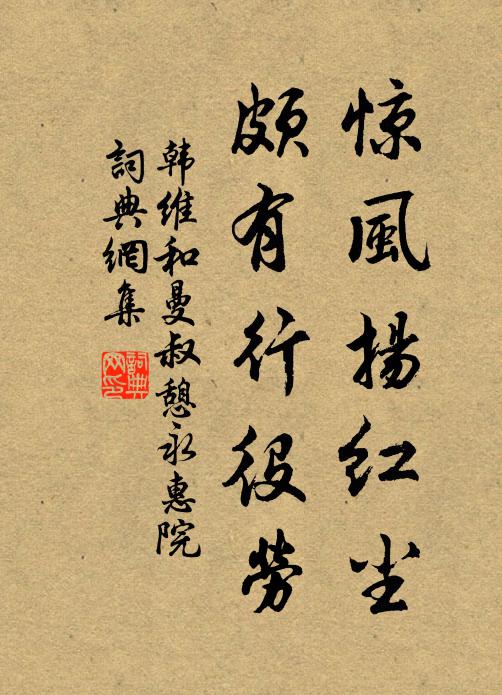 惊風揚红尘
頗有行役勞
韩維和曼叔憩永惠院
詞典網集
詞典网印